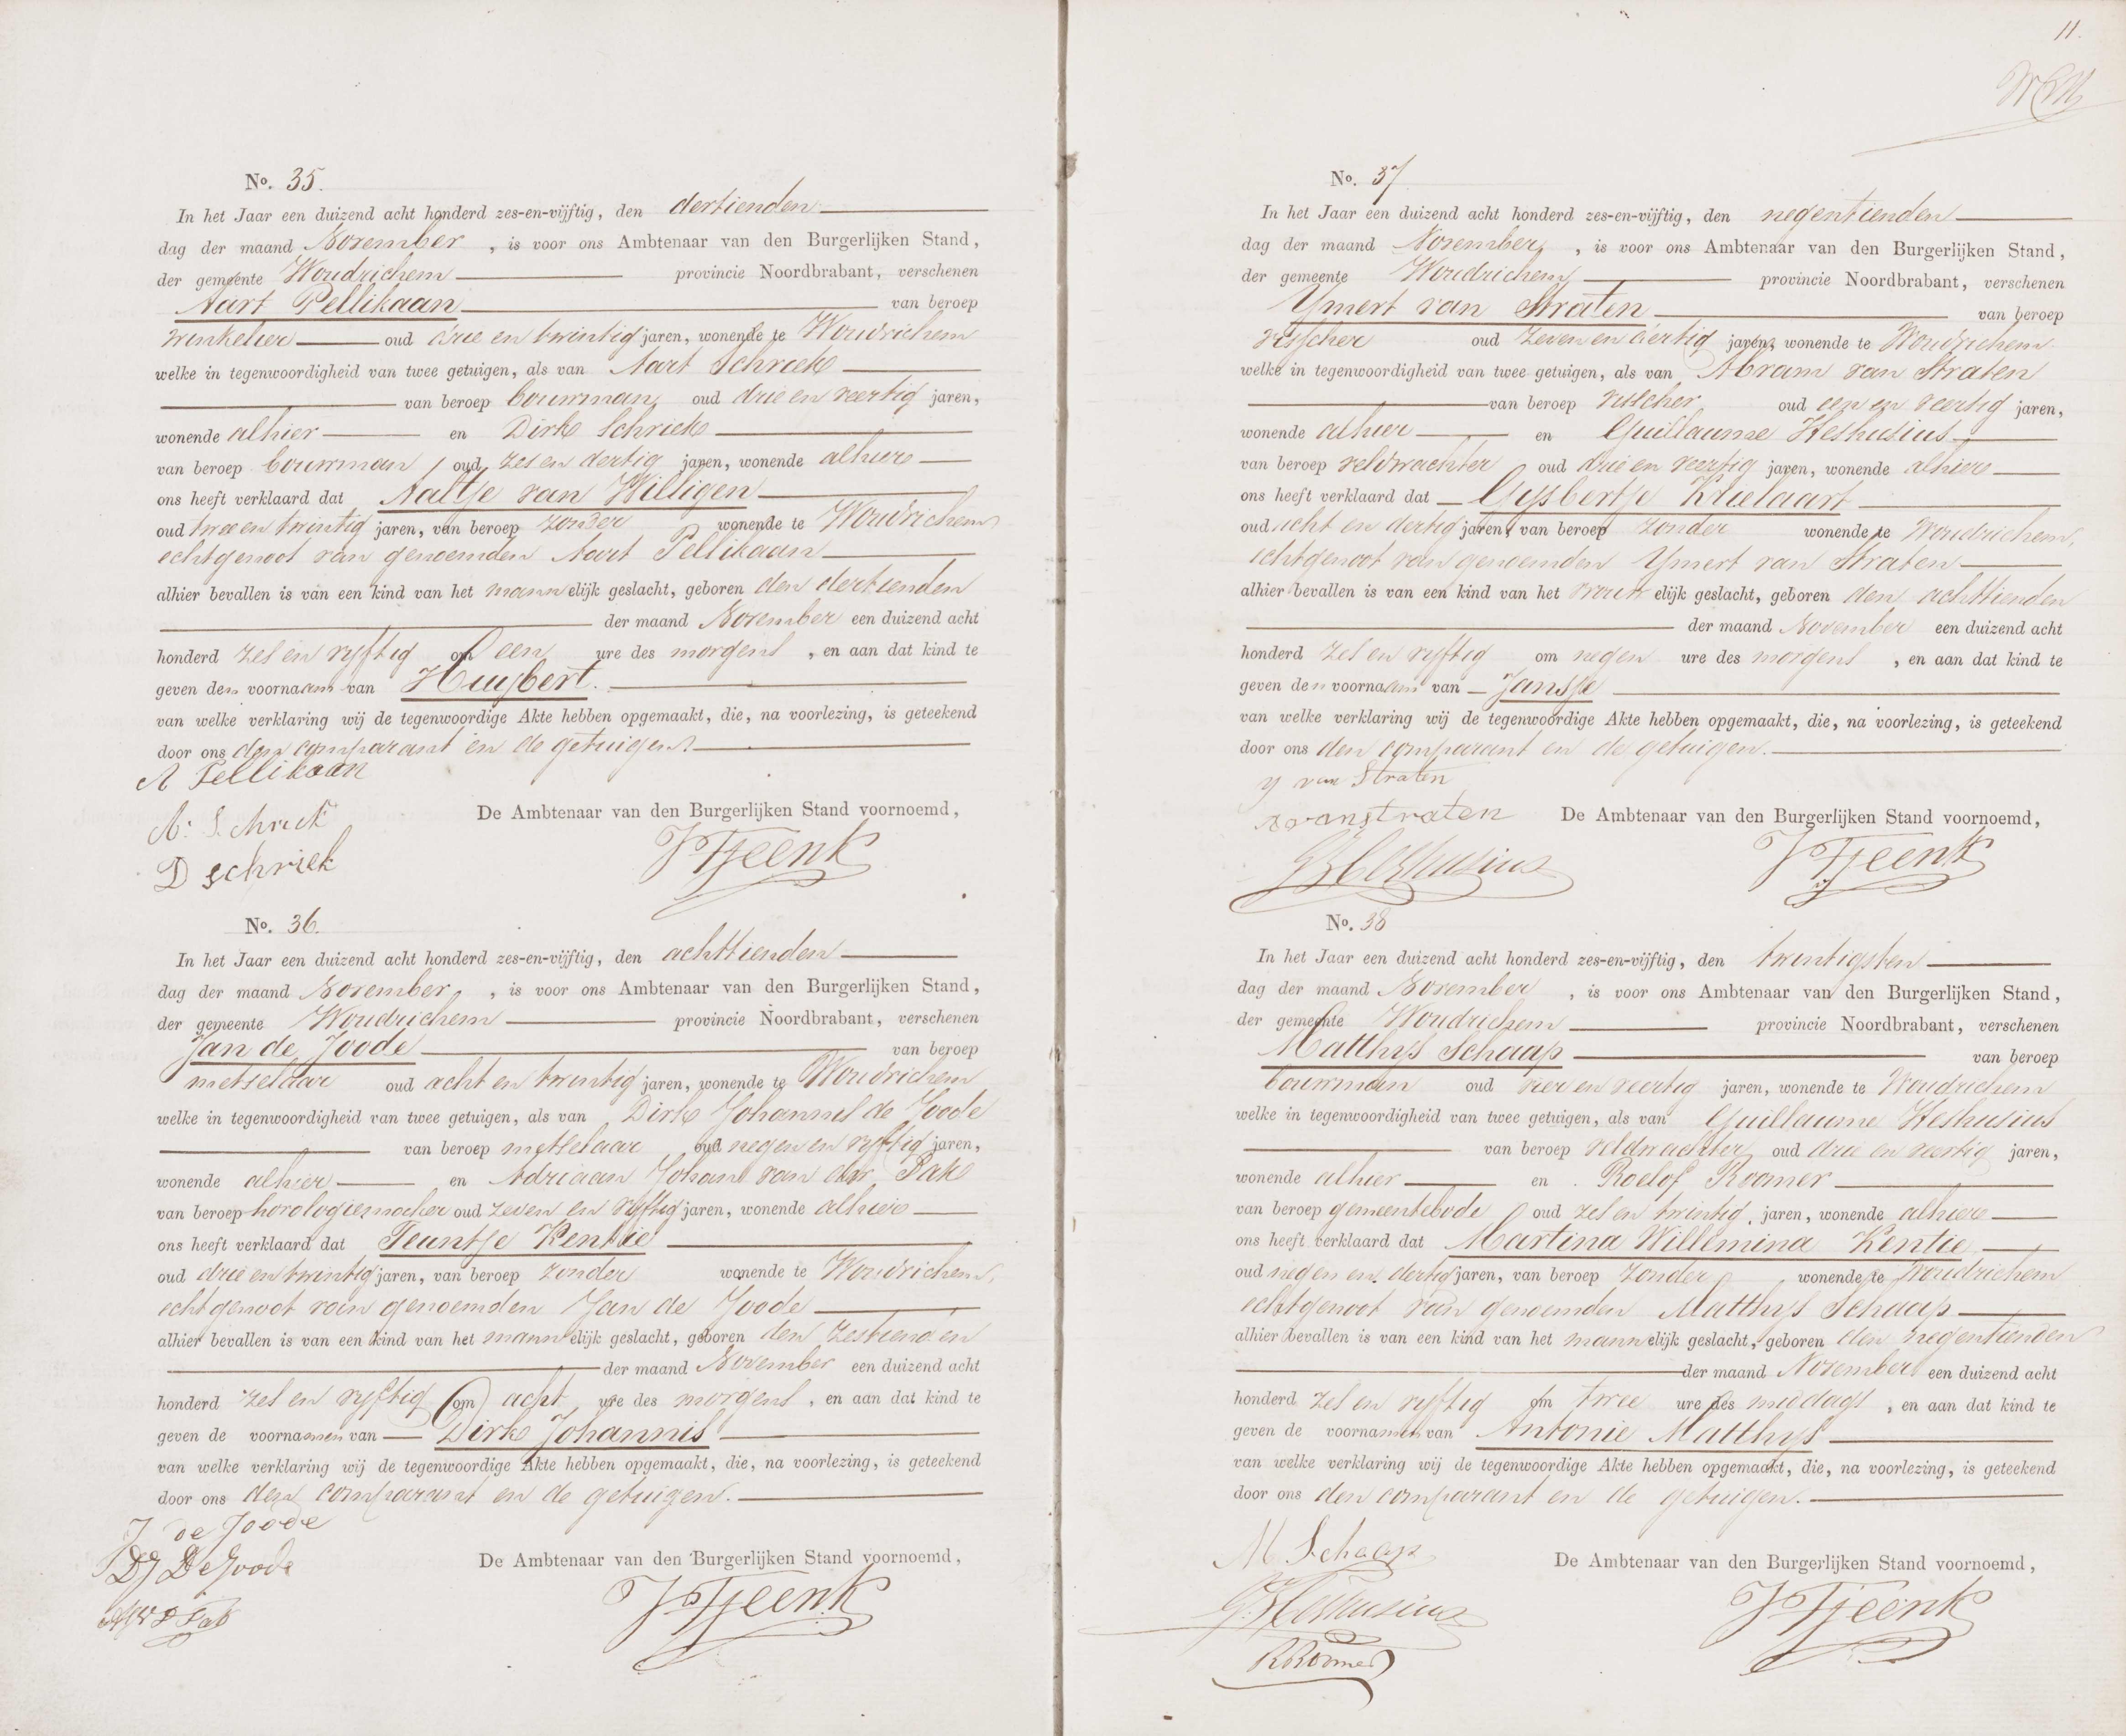 No. 35.
In het Jaar een duizend acht honderd zes-en-vijftig, den dertienden
dag der maand November, is voor ons Ambtenaar van den Burgerlijken Stand,
der gemeente Woudrichem provincie Noordbrabant, verschenen
Aart Pellikaan van beroep
winkelier oud drie en twintig jaren, wonende te Woudrichem
welke in tegenwoordigheid van twee getuigen, als van Aart Schriek
van beroep bouwman, oud drie en veertig jaren,
wonende alhier en Dirk Schriek
van beroep bouwman, oud zes en dertig jaren, wonende alhier
ons heeft verklaard dat Aaltje van Willigen
oud twee en twintig jaren, van beroep zonder wonende te Woudrichem
echtgenoot van genoemden Aart Pellikaan
alhier bevallen is van een kind van het mannelijk geslacht, geboren den dertienden
der maand November een duizend acht
honderd zes en vyftig om een ure des morgens, en aan dat kind te
geven den voornaam van Huybert.
van welke verklaring wij de tegenwoordige Akte hebben opgemaakt, die, na voorlezing, is geteekend
door ons den comparant en de getuigen.
A Pellikaan
A. Schriek
De Ambtenaar van den Burgerlijken Stand voornoemd,
D schriek
Tjeenk
No. 36.
In het Jaar een duizend acht honderd zes-en-vijftig, den achttienden
dag der maand November, is voor ons Ambtenaar van den Burgerlijken Stand,
der gemeente Woudrichem provincie Noordbrabant, verschenen
Jan de Joode van beroep
metselaar oud acht en twintig jaren, wonende te Woudrichem
welke in tegenwoordigheid van twee getuigen, als van Dirk Johannes de Joode
van beroep metselaar oud negen en vyftig jaren,
wonende alhier en Adriaan Johan van der Pak
van beroep horologiemaker oud zeven en vyftig jaren, wonende alhier
ons heeft verklaard dat Teuntje Kentie
oud drie en twintig jaren, van beroep zonder wonende te Woudrichem,
echtgenoot van genoemden Jan de Joode
alhier bevallen is van een kind van het mannelijk geslacht, geboren den zestienden
der maand November een duizend acht
honderd zes en vyftig om acht ure des morgens, en aan dat kind te
geven de voornamen van Dirk Johannis
van welke verklaring wij de tegenwoordige Akte hebben opgemaakt, die, na voorlezing, is geteekend
door ons den comparant en de getuigen.
J de Joode
DJ De Joode
De Ambtenaar van den Burgerlijken Stand voornoemd,
Tjeenk
11.
No. 37
In het Jaar een duizend acht honderd zes-en-vijftig, den negentienden
dag der maand November, is voor ons Ambtenaar van den Burgerlijken Stand,
der gemeente Woudrichem provincie Noordbrabant, verschenen
Ymert van Straten van beroep
visscher oud zeven en dertig jaren, wonende te Woudrichem
welke in tegenwoordigheid van twee getuigen, als van Abram van Straten
van beroep visscher oud een en veertig jaren,
wonende alhier en Guillaume Heshusius
van beroep veldwachter oud drie en veertig jaren, wonende alhier
ons heeft verklaard dat Gysbertje
oud acht en dertig jaren, van beroep zonder wonende te Woudrichem,
echtgenoot van genoemden Ymert van Straten
alhier bevallen is van een kind van het vrouwelijk geslacht, geboren den achttienden
der maand November een duizend acht
honderd zes en vyftig om negen ure des morgens, en aan dat kind te
geven den voornaam van Jansje
van welke verklaring wij de tegenwoordige Akte hebben opgemaakt, die, na voorlezing, is geteekend
door ons den comparant en de getuigen.
y van Straten
a vanstraten
De Ambtenaar van den Burgerlijken Stand voornoemd,
G Heshusius
Tjeenk
No. 38
In het Jaar een duizend acht honderd zes-en-vijftig, den twintigsten
dag der maand November, is voor ons Ambtenaar van den Burgerlijken Stand,
der gemeente Woudrichem provincie Noordbrabant, verschenen
Matthys Schaap van beroep
bouwman oud vier en veertig jaren, wonende te Woudrichem
welke in tegenwoordigheid van twee getuigen, als van Guillaume Heshusius
van beroep veldwachter, oud drie en veertig jaren,
wonende alhier en Roelof Roomer
van beroep gemeentebode oud zes en twintig jaren, wonende alhier
ons heeft verklaard dat Martina Willemina Kentie
oud negen en dertig jaren, van beroep zonder wonende te Woudrichem
echtgenoot van genoemden Matthys Schaap
alhier bevallen is van een kind van het mannelijk geslacht, geboren den negentienden
der maand November een duizend acht
honderd zes en vyftig om twee ure des middags, en aan dat kind te
geven de voornamen van Antonie Matthys
van welke verklaring wij de tegenwoordige Akte hebben opgemaakt, die, na voorlezing, is geteekend
door ons den comparant en de getuigen.
M Schaap
De Ambtenaar van den Burgerlijken Stand voornoemd,
G Heshusius
Tjeenk
R Roomer